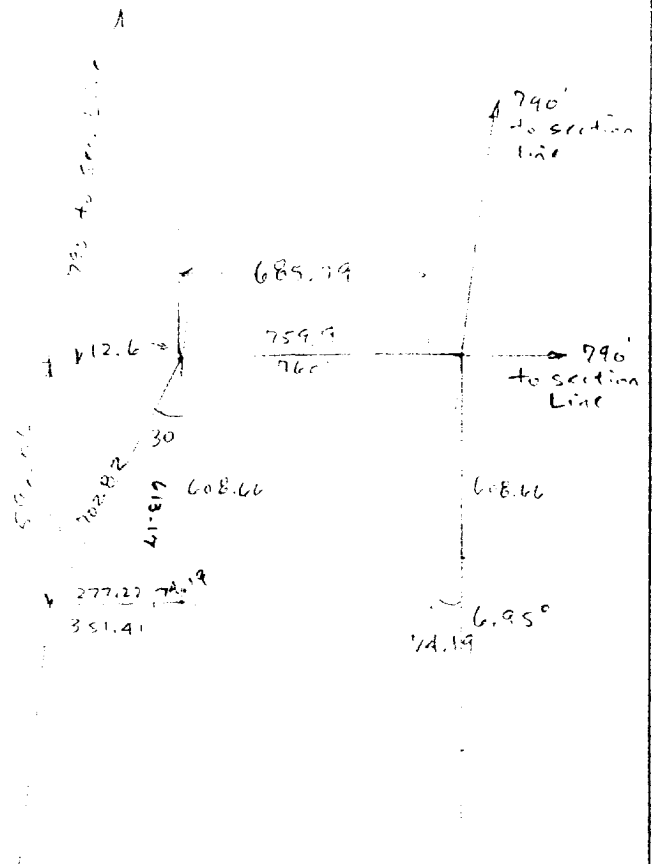 790'
to section
line
685.79
12.6
759.9
760'
790'
to section
Line
30
702.82
613.17
608.66
608.66
277.22 74.19
351.41
6.95°
74.19